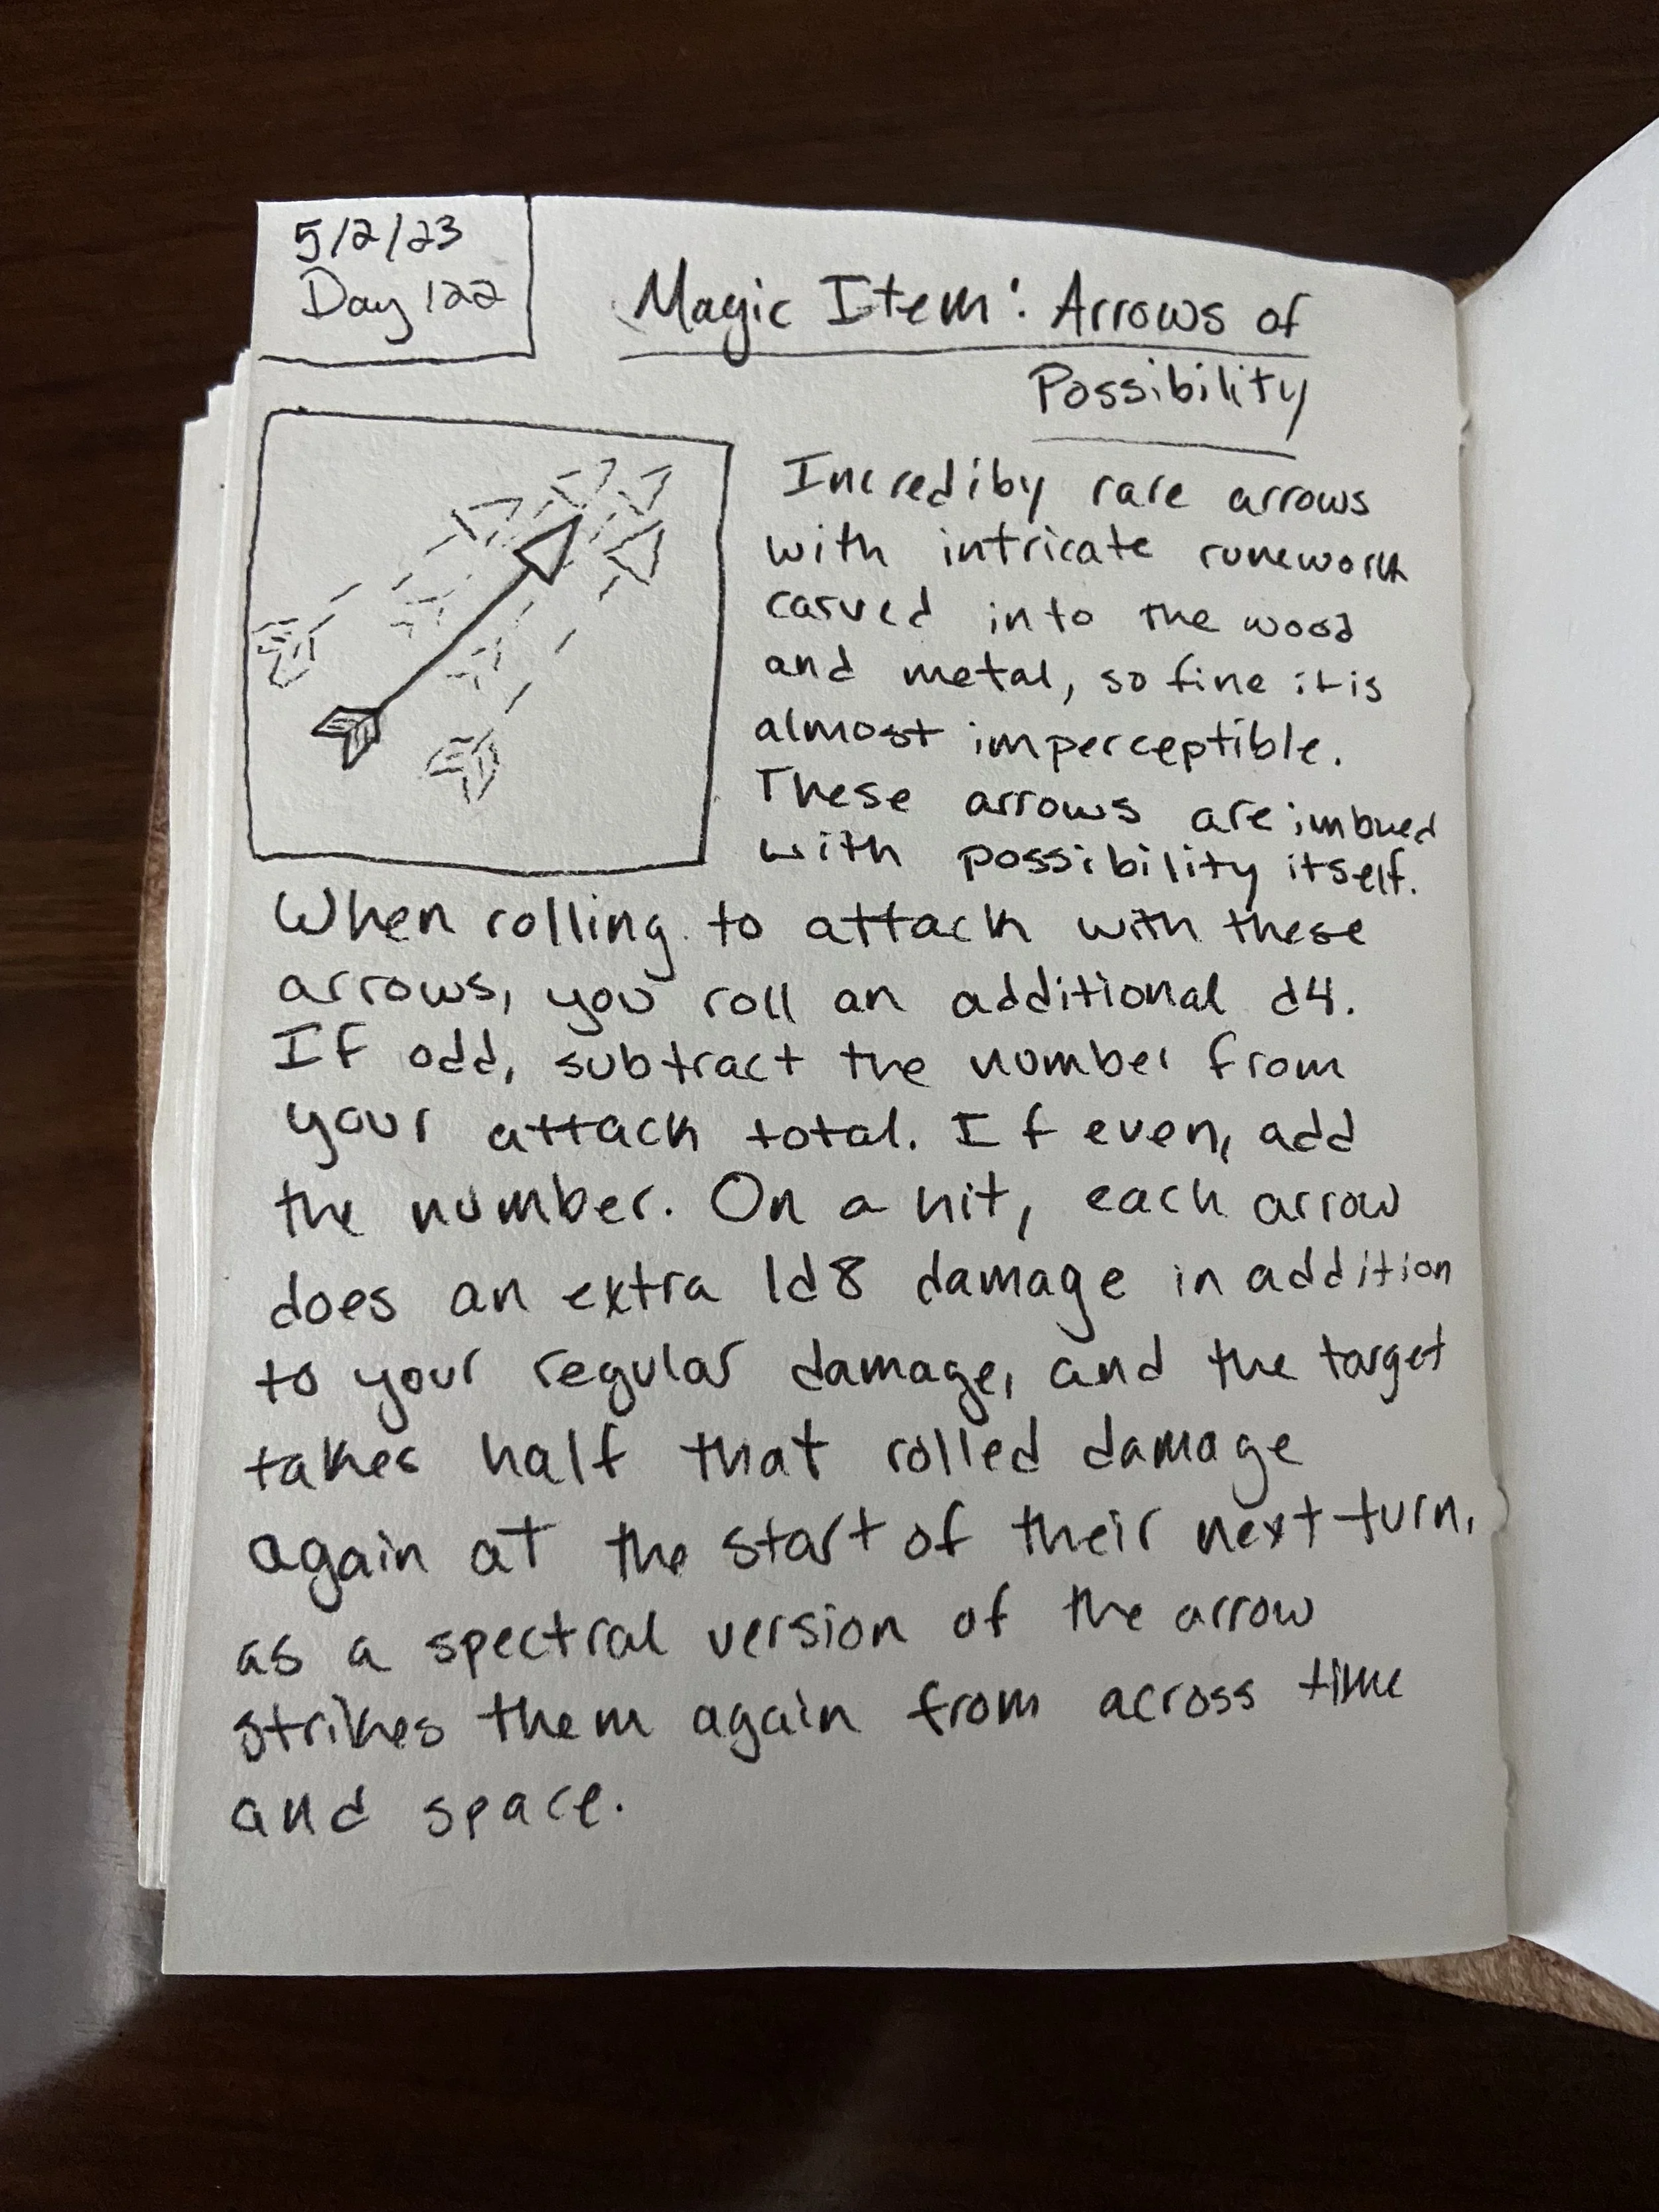 5/2/23
Day 122
Magic Item: Arrows of
Possibility
Incrediby rare arrows
with intricate runework
carved into the wood
and metal, so fine it is
almost imperceptible.
These arrows are imbued
with possibility itself.
When rolling to attack with these
arrows, you roll an additional d4.
If odd, subtract the number from
your attack total. If even, add
the number. On a hit, each arrow
does an extra 1d8 damage in addition
to your regular damage, and the target
takes half that rolled damage
again at the start of their next turn,
as a spectral version of the arrow
strikes them again from across time
and space.